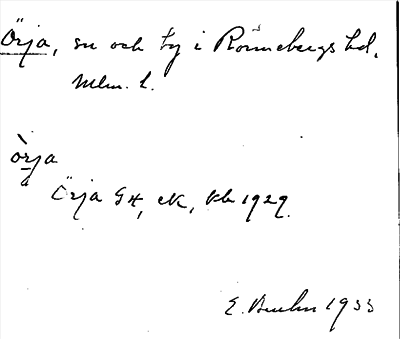 Örja, sn och by i Rönnebergs hd,
Mlm. l.
òrja
a
Örja G4, eK, kb 1929.
E. Bruhn 1933